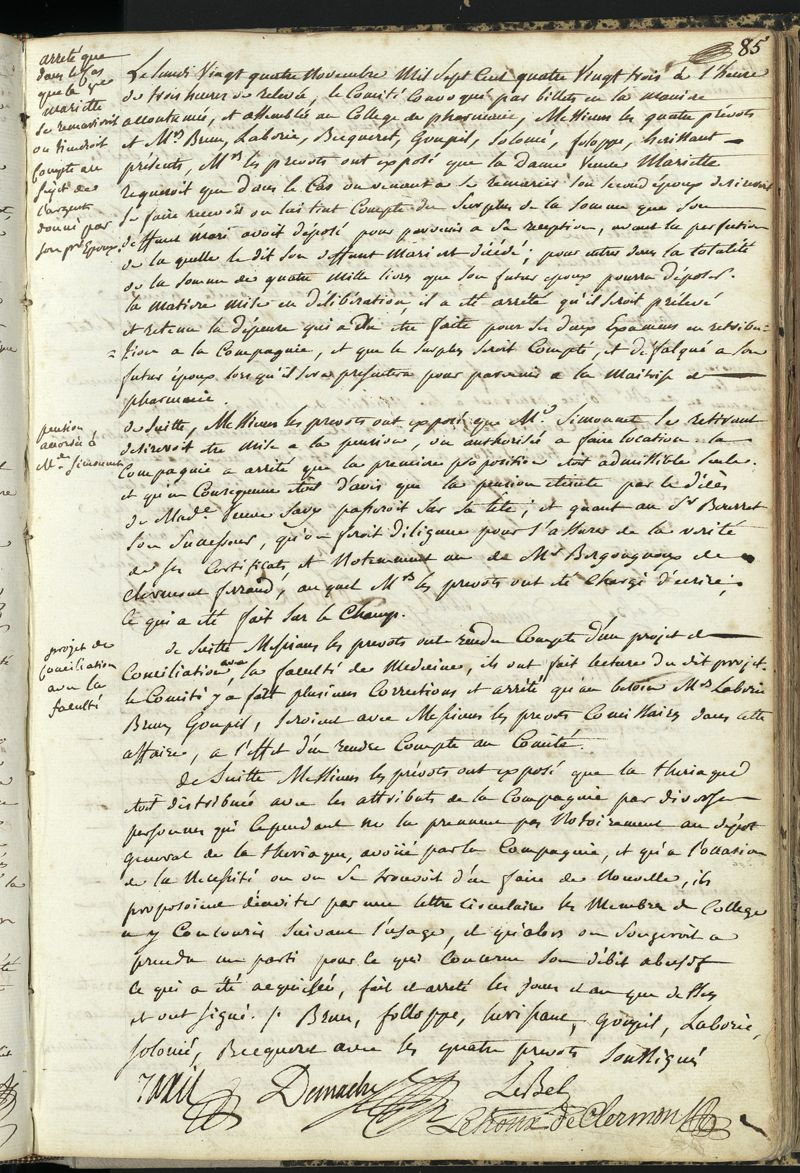 85
arreté que
dans le Cas
que la Ve
Mariette
se remarieroit
on tiendroit
Compte au
sujet de
l'argent
donné par
son pr Epoux.
Le lundi Vingt quatre Novembre Mil Sept Cent quatre Vingt trois à l'heure
de trois heures de relevée, le Comité Convoqué par billets en la maniere
accoutumée, et assemblés au College de pharmacie, Messieurs les quatre prévots
et Mrs Brun, Laborie, Becqueret, Goupil, Solomé, folloppe, herissant
présents, Mrs les prevots ont exposé que la Dame Veuve Mariette
requeroit que dans le Cas ou venant a se remarier son second époux desireroit
se faire recevoir on lui tint Compte du Surplus de la somme que son
deffunt mari avoit déposé pour parvenir a sa reception, avant la perfection
de la quelle le dit son deffunt Mari est décédé; pour entrer dans la totalité
de la somme de quatre Mille livres que son futur époux pourra déposer.
la Matiere Mise en délibération, il a été arrêté qu'il seroit prélevé
et retenu la dépense qui a dû etre faite pour les deux Examens en retribu=
=tion a la Compagnie, et que le surplus seroit Compté, et défalqué a son
futur époux lorsqu'il sera presenté pour parvenir a la Maitrise de
pharmacie.
pension
accordée à
Mr de Simonnet
de Suitte, Messieurs les prevots ont exposé que Mr Simonnet se retirant
desireroit etre Mis a la pension, ou authorisé a faire location. la
Compagnie a arreté que la premiere proposition étoit admissible seule.
et qu'en Consequence étoit d'avis que la pension éteinte par le déces
de Made Veuve Savy passeroit sur sa tête; et quant au Sr Bourret
son Successeur, qu'on feroit diligence pour s'assurer de la verité
de ses Certificats et Notamment un de Mr Bergougnoux de
clermont ferrand, au quel Mrs les prevots ont eté chargé d'écrire;
Ce qui a été fait sur le Champ.
projet de
Conciliation
avec la
faculté
de Suitte Messieurs les prevots ont rendu Compte d'un projet de
Conciliation avec la faculté de Medecine, ils ont fait lecture du dit projet.
le Comité y a fait plusieurs Corrections et arrêté qu'au besoin Mrs Laborie
Brun, Goupil, seroient avec Messieurs les prevots Comissaires dans cette
affaire, a l'effet d'en rendre Compte au Comité.
de Suitte Messieurs les prévots ont exposé que la theriaque
étoit distribuée avec les attributs de la Compagnie par diverses
personnes qui Cependant ne la prennent pas Notoirement au dépôt
general de la theriaque, avoüé par la Compagnie, et qu'a l'occasion
de la Necessité ou on se trouvoit d'en faire de Nouvelle, ils
proposoient d'inviter par une lettre Circulaire les Membres du College
a y Concourir suivant l'usage, et qu'alors on songeroit a
prendre un parti pour ce qui Concerne son débit abusif
Ce qui a été acquiescé, fait et arreté les jour et an que dessus
et ont signé. Brun, folloppe, herissant, Goupil, Laborie,
Solomé, Becqueret avec les quatre prevots soussignés
Taxil Demachy LeBel
Leroux de Clermon